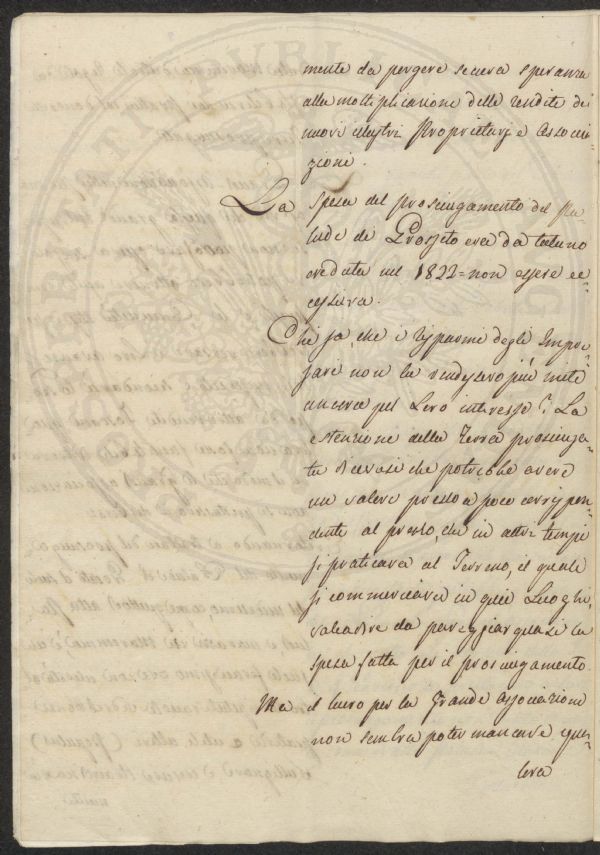 mente da porgere sicura speranza
alla moltiplicazione delle rendite dei
nuovi illustri Proprietarj e Associa=
zioni.
La spesa del prosciugamento del Pa=
lude di Grosseto era da taluno
creduta nel 1822 = non essere ec=
cessiva.
Chi sà, che i risparmi degli Impre=
sarj non la rendessero più mite
ancora pel loro interesse? La
estenzione della Terra prosciuga=
ta dicevasi che potrebbe avere
un valore presso a poco corrispon=
dente al prezzo, che in altri tempi
si praticava al Terreno, il quale
si commerciava in quei Luoghi,
valadire da pareggiar quasi la
spesa fatta per il prosciugamento.
Ma il lucro per la Grande Associazione
non sembra poter mancare qua=
lora